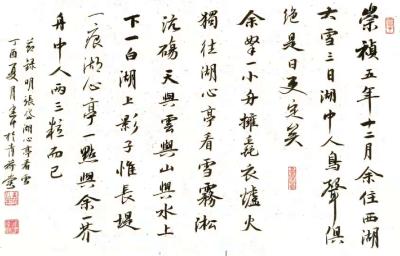 崇禎五年十二月余住西湖
大雪三日湖中人鳥聲俱
絕是日更定矣
余拏一小舟擁毳衣爐火
獨往湖心亭看雪霧淞
沆碭天與雲與山與水上
下一白湖上影子惟長堤
一痕湖心亭一點與余一芥
舟中人兩三粒而已
錄明張岱湖心亭看雪
丁酉夏月於